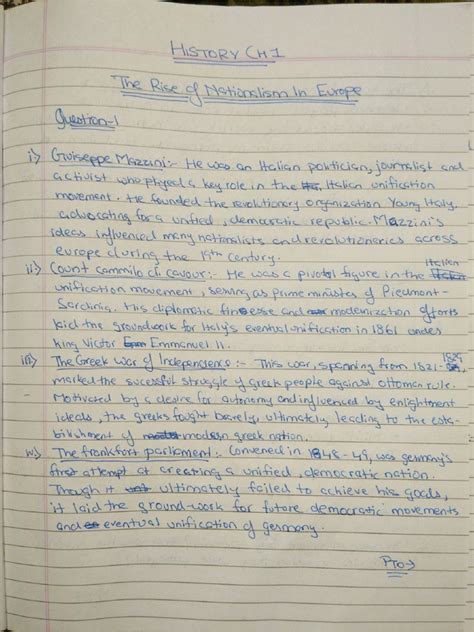 HISTORY CH 1
The Rise of Nationalism In Europe
Question-1
i) Gwiseppe Mazzini:- He was an Italian politician, journalist and
activist who played a key role in the Italian unification
movement. He founded the revolutionary organization Young Italy.
advocating for a unified, democratic republic. Mazzini's
ideas influenced many nationalists and revolutionaries across
europe during the 19th century.
ii) Count cammilo di cavour:- He was a pivotal figure in the Italian
unification movement, serving as prime minister of Piedmont-
Sardinia. His diplomatic finesse and modernization efforts
laid the groundwork for Italy's eventual unification in 1861 under
king Victor Emmanuel II.
iii) The Greek war of Independence:- This war, spanning from 1821-1829,
marked the sucessful struggle of greek people against ottoman rule.
Motivated by a desire for autonomy and influenced by enlightment
ideas, the greeks fought barely, ultimately leading to the esta-
blishment of modern greek nation.
iv) The frankfort parliament:- Convened in 1848-49, was germany's
first attempt at creating a unified, democratic nation.
Though it ultimately failed to achieve his goals,
it laid the ground-work for future democratic movements
and eventual unification of germany.
PTO→